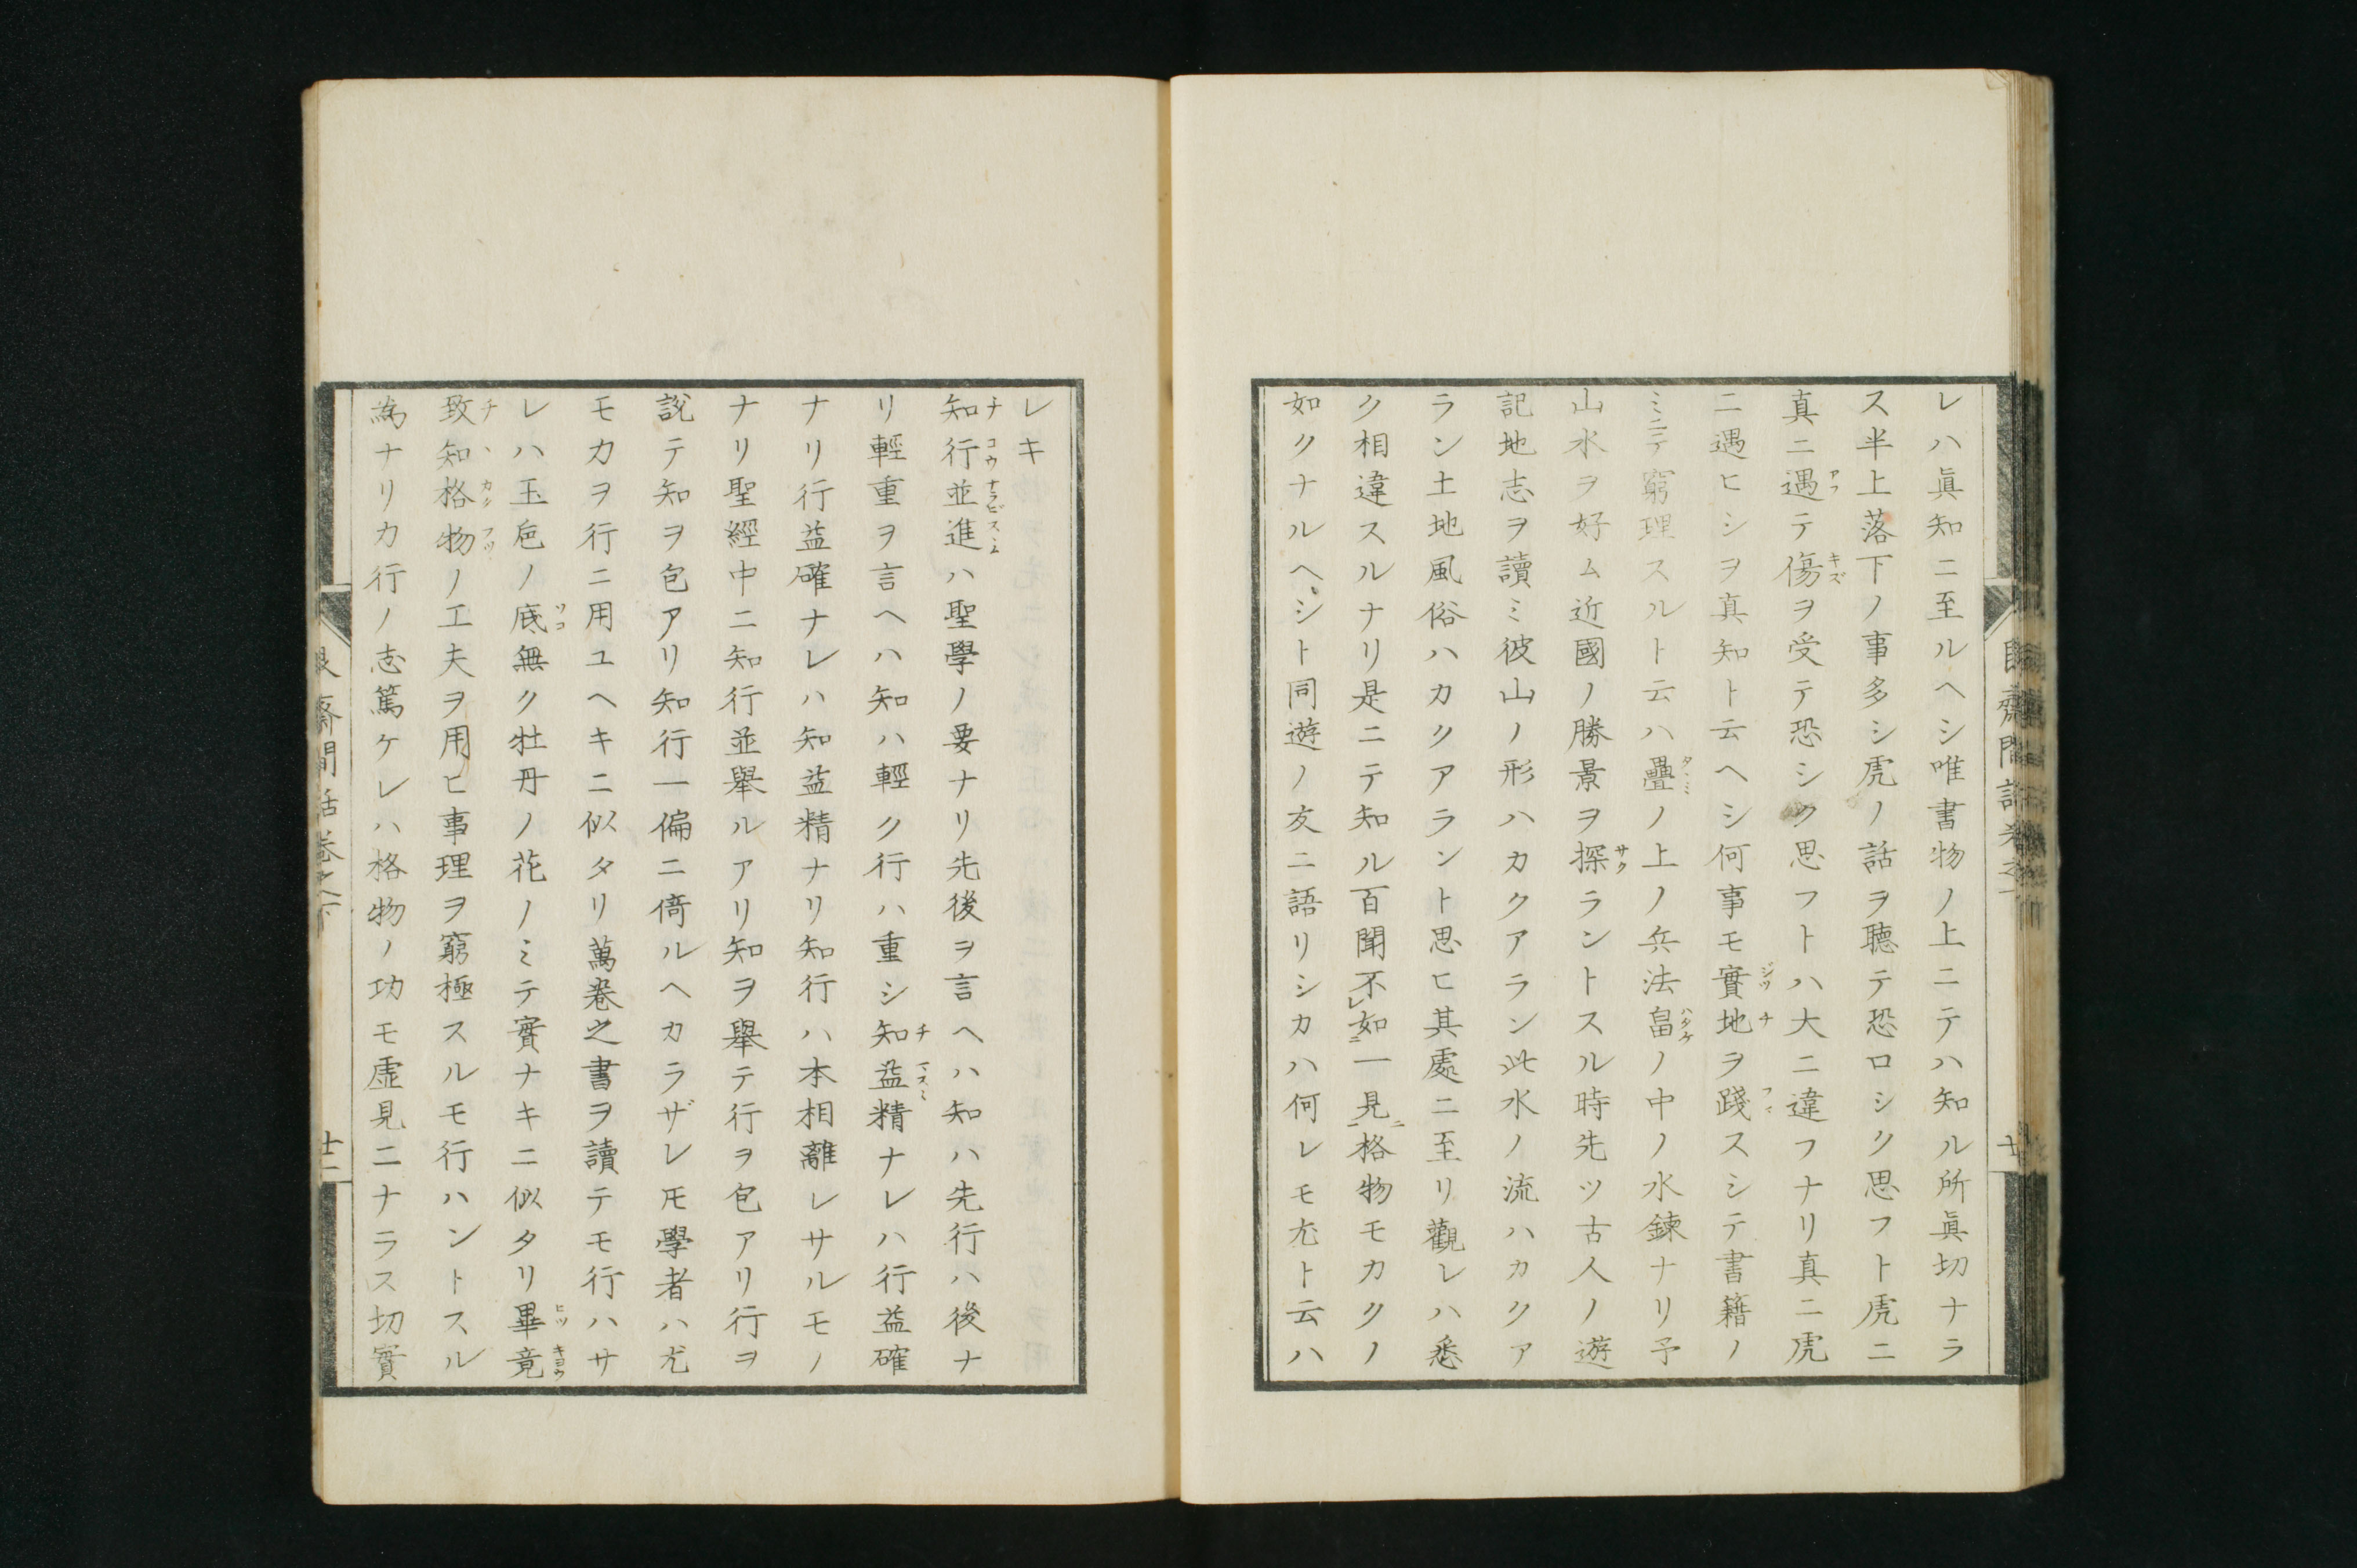 レハ眞知ニ至ルヘシ唯書物ノ上ニテハ知ル所眞切ナラ
ス半上落下ノ事多シ虎ノ話ヲ聴テ恐ロシク思フト虎ニ
真ニ遇テ傷ヲ受テ恐シク思フトハ大ニ違フナリ真ニ虎
ニ遇ヒシヲ真知ト云ヘシ何事モ實地ヲ踐スシテ書籍ノ
ミニテ窮理スルト云ハ疊ノ上ノ兵法畠ノ中ノ水鍊ナリ予
山水ヲ好ム近國ノ勝景ヲ探ラントスル時先ツ古人ノ遊
記地志ヲ讀ミ彼山ノ形ハカクアラン此水ノ流ハカクア
ラン土地風俗ハカクアラント思ヒ其處ニ至リ觀レハ悉
ク相違スルナリ是ニテ知ル百聞不レ如ニ一見ニ格物モカクノ
如クナルヘシト同遊ノ友ニ語リシカハ何レモ尤ト云ハ
レキ
知行並進ハ聖學ノ要ナリ先後ヲ言ヘハ知ハ先行ハ後ナ
リ輕重ヲ言ヘハ知ハ輕ク行ハ重シ知益精ナレハ行益確
ナリ行益確ナレハ知益精ナリ知行ハ本相離レサルモノ
ナリ聖經中ニ知行並舉ルアリ知ヲ舉テ行ヲ包アリ行ヲ
說テ知ヲ包アリ知行一偏ニ倚ルヘカラザレモ學者ハ尤
モカヲ行ニ用ユヘキニ似タリ萬巻之書ヲ讀テモ行ハサ
レハ玉巵ノ底無ク牡丹ノ花ノミテ實ナキニ似タリ畢竟
致知格物ノ工夫ヲ用ヒ事理ヲ窮極スルモ行ハントスル
為ナリカ行ノ志篤ケレハ格物ノ功モ虛見ニナラス切實
齋間話巻之下
十二